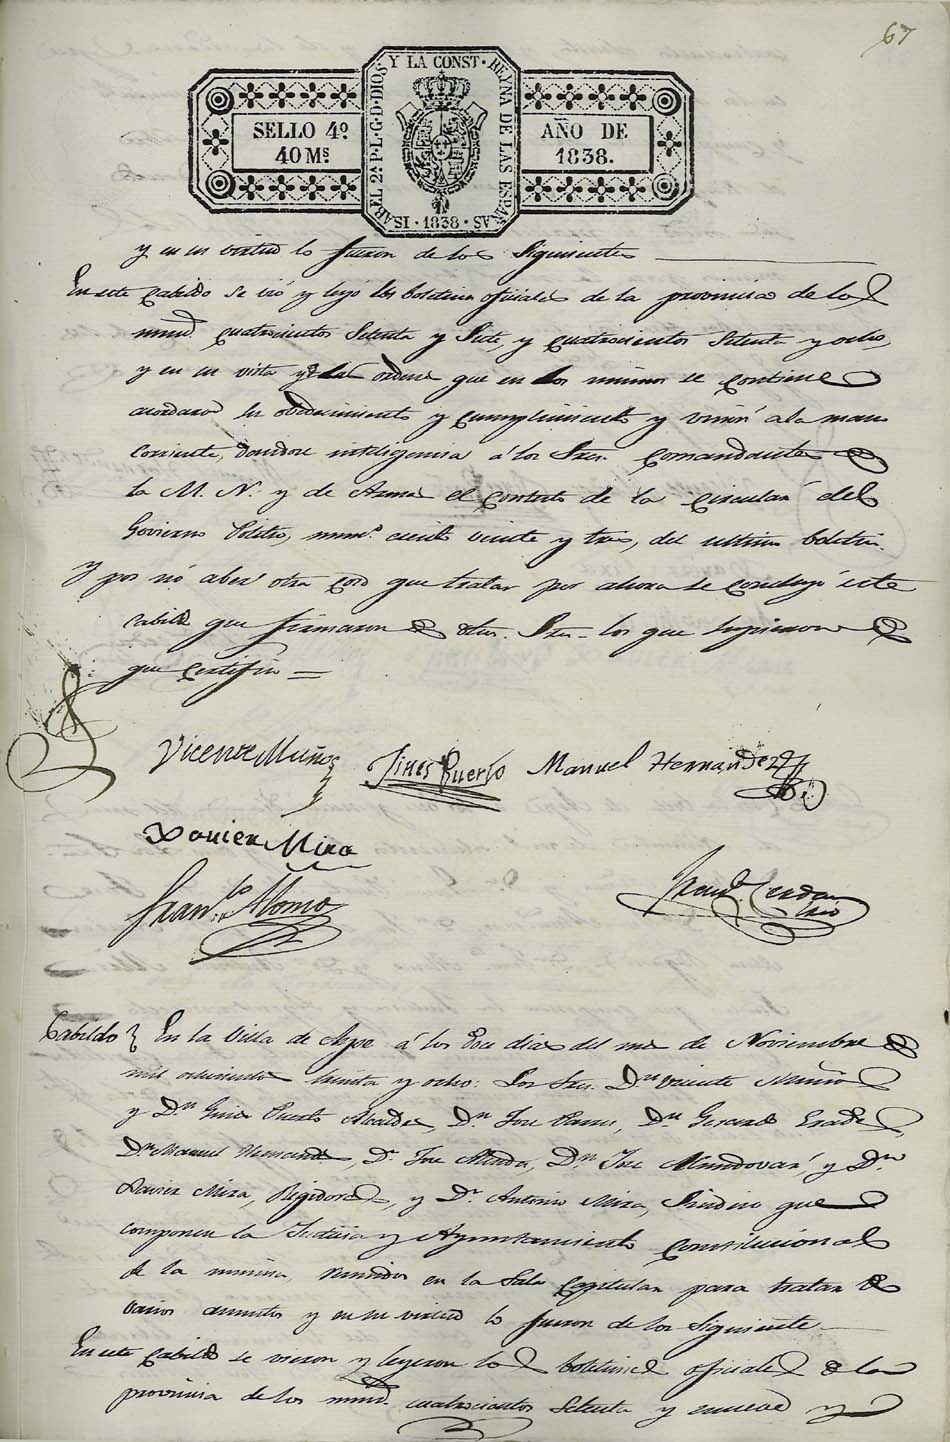 67
SELLO 4º
40 Mˢ
ISABEL 2ª P.L.G.D.DIOS Y LA CONST. REYNA DE LAS ESPAÑAS
1838
AÑO DE
1838.
y en su virtud lo fueron de los Siguientes
En este Cabildo se vió y leyó los boletines oficiales de la provincia de los
num.ˢ cuatrocientos Setenta y Siete, y cuatrocientos Setenta y ocho,
y en su vista y de las ordenes que en los mismos se contiene
acordaron su obedecimiento y cumplimiento y unión á la mano
corriente, dandose inteligencia á los Sres. Comandantes de
la M. N. y de Armas el contesto de la circular del
Govierno Politico, num.º ciento veinte y tres, del ultimo boletin.
Y por nó aber otra cosa que tratar por ahora se concluyó este
cabildo que firmaron de dhos. Sres. los que supieron de
que certifico =
Vicente Muñoz
Jines Puerto
Manuel Hernandez
Xavier Mira
Fran.ᶜᵒ Alonso
Cabildo } En la Villa de Aspe á los doce dias del mes de Noviembre de
mil ochocientos treinta y ocho: Los Sres. Dⁿ Vicente Muñoz
y Dⁿ Gines Puerto Alcaldes, Dⁿ Jose Dⁿ
Dⁿ Manuel Hernandez, Dⁿ Jose Dⁿ Jose y Dⁿ
Xavier Mira, Regidores, y Dⁿ Antonio Mira, Sindico que
componen la Justicia y Ayuntamiento Constitucional
de la misma, reunidos en la Sala Capitular para tratar de
varios asuntos y en su virtud lo fueron de los Siguientes
En este Cabildo se vieron y leyeron los boletines oficiales de la
provincia de los num.ˢ cuatrocientos Setenta y nueve y